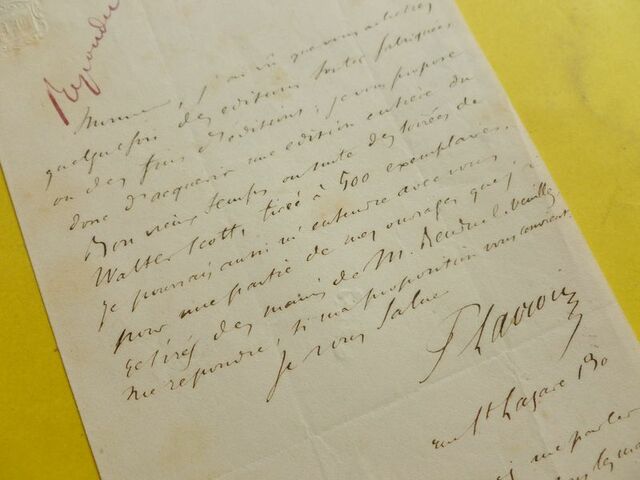 Répondu
Monsieur, j'ai vu que vous achetiez
quelquefois des editions toutes fabriquées
ou des fins d'éditions; je vous propose
donc d'acquerir une edition entière du
Bon vieux temps ou suite des soirées de
Walter Scott, tiré à 500 exemplaires.
Je pourrais aussi m'entendre avec vous
pour une partie de mes ouvrages que j'ai
retirés des mains de M. Renduel. Veuillez
me repondre, si ma proposition vous convient.
Je vous salue
P L Jacob
rue St Lazare
me parler